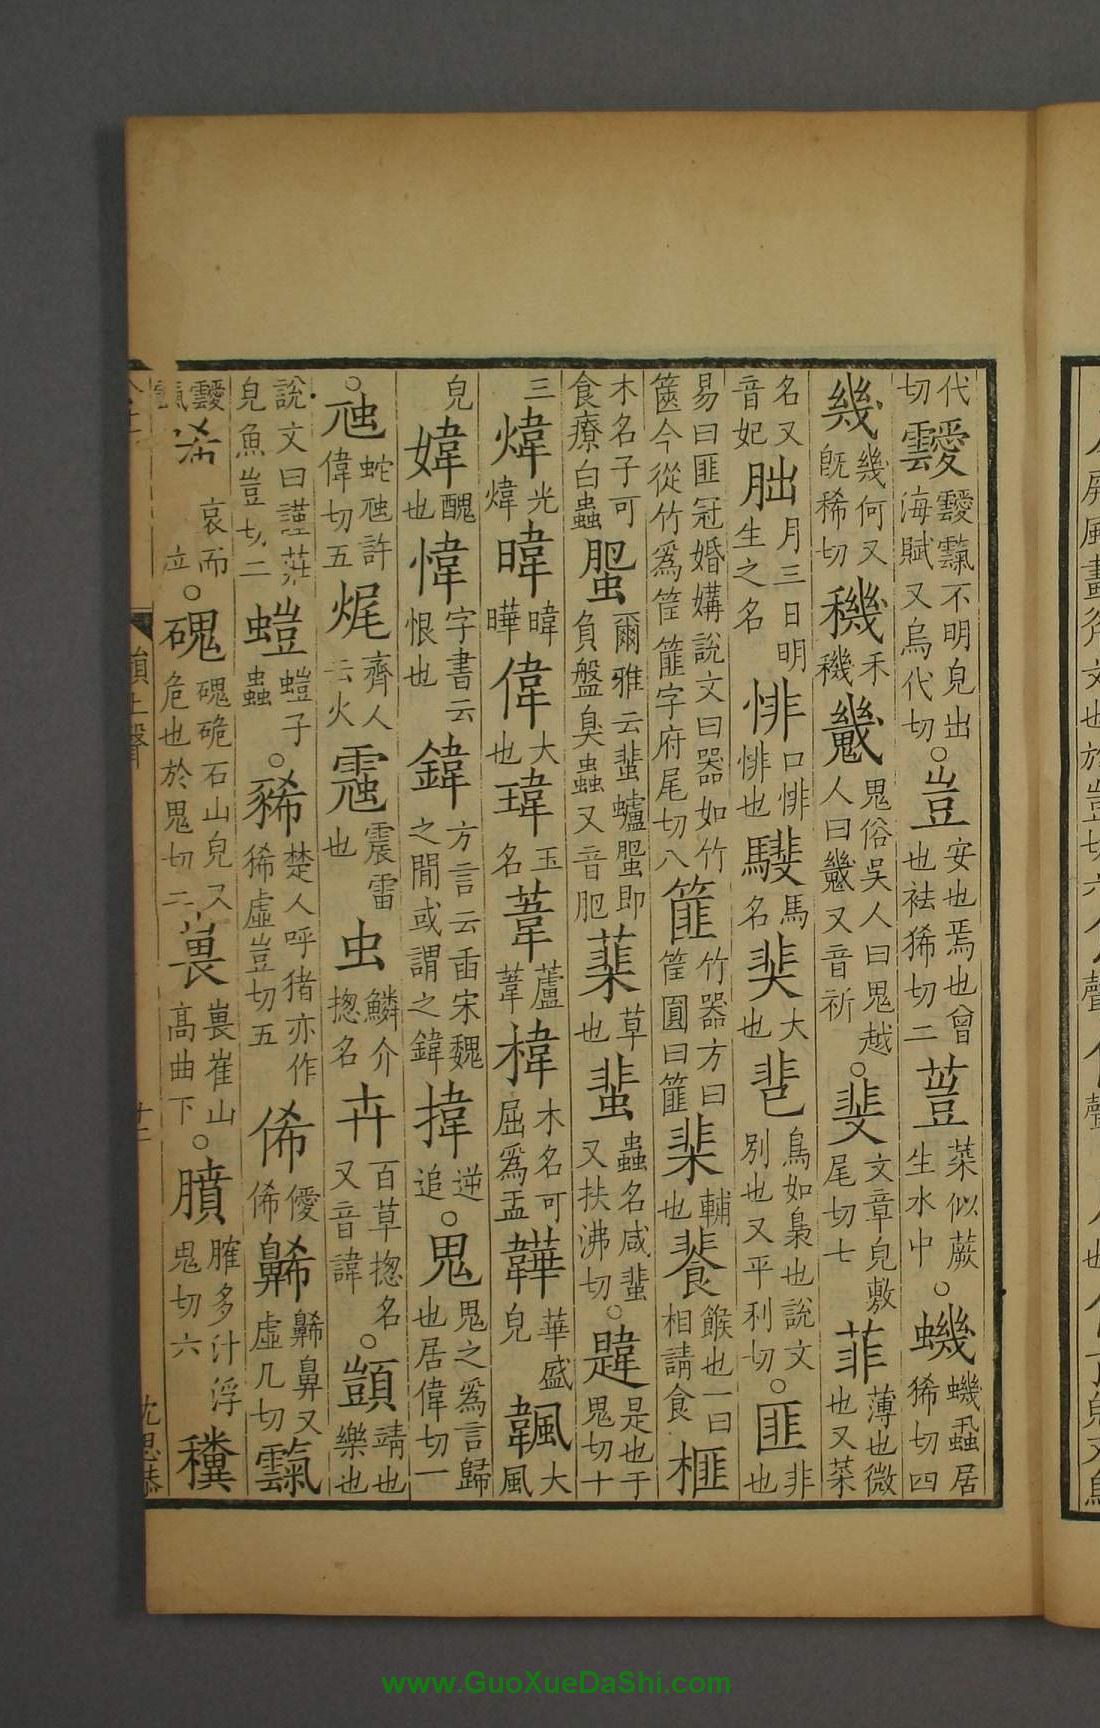 代切靉靉靆不明皃出海賦又烏代切○豈安也焉也曾也袪狶切二荳菜似蕨生水中○蟣蟣蝨居狶切四
幾幾何又旣稀切穖禾穖䰇鬼俗吳人曰鬼越人曰䰇又音祈○斐文章皃敷尾切七菲薄也微也又菜
名又音妃朏月三日明生之名悱口悱悱也騑馬名奜大也䨽鳥如梟也說文別也又平利切○匪非也
易曰匪冦婚媾說文曰器如竹篋今從竹爲筐篚字府尾切八篚竹器方曰筐圓曰篚棐輔也餥餱也一曰相請食榧
木名子可食療白蟲蜰爾雅云蜚蠦蜰即負盤臭蟲又音肥菒草也蜚蟲名咸蜚又扶沸切○韙是也于鬼切十
三煒光煒暐暐曄偉大也瑋玉名葦蘆葦椲木名可屈爲盂韡華盛皃颹大風
皃媁醜也愇字書云恨也鍏方言云臿宋魏之間或謂之鍏揘逆追○鬼鬼之爲言歸也居偉切一
○虺蛇虺許偉切五烠齊人云火䨠震雷也虫鱗介揔名卉百草揔名又音諱○顗靖也樂也
說文曰謹莊皃魚豈切二螘螘子蟲○豨楚人呼猪亦作狶虛豈切五俙僾俙䶌䶌鼻又虛几切霼
靉霼 哀而 ○磈磈硊石山皃又危也於鬼切二㟪㟪崔山高曲下○膹膗多汁浮鬼切六𪍿
韻上聲
十二
沈思恭
www.GuoXueDaShi.com